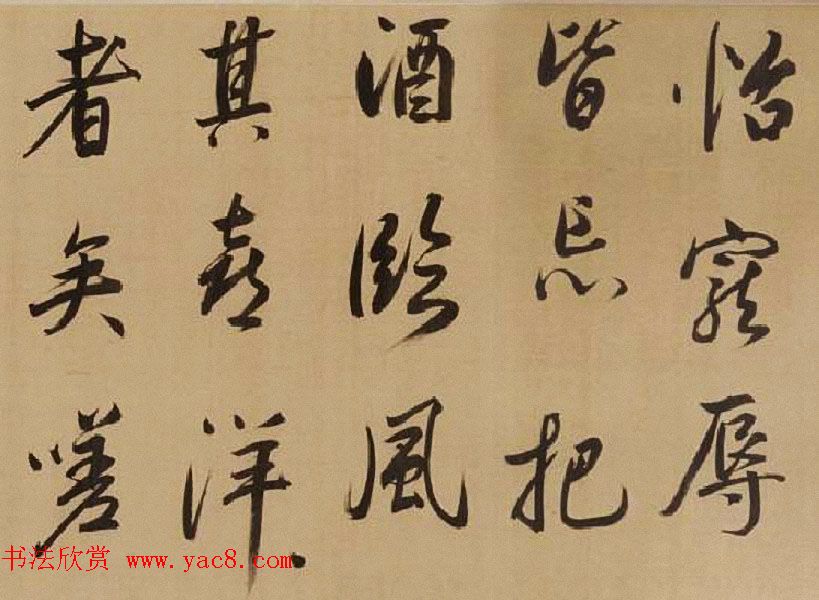 怡寵辱
皆忘把
酒臨風
其喜洋〻
者矣嗟
书法欣赏 www.yac8.com